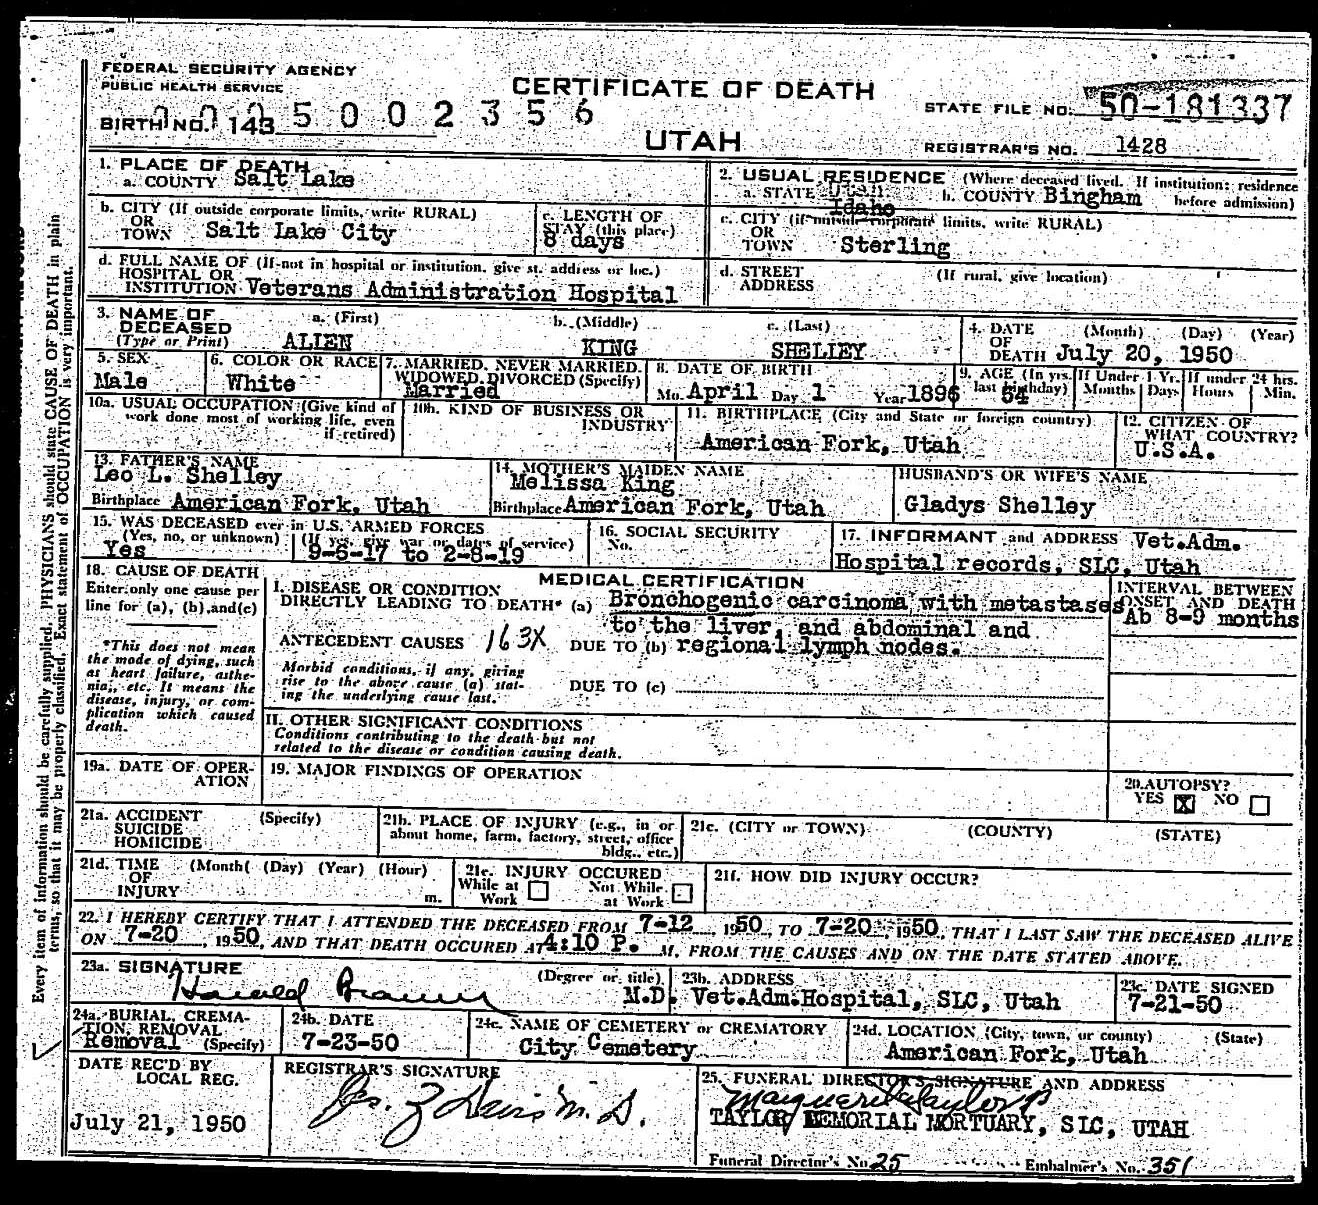 FEDERAL SECURITY AGENCY
PUBLIC HEALTH SERVICE
CERTIFICATE OF DEATH
UTAH
STATE FILE NO. 50-181337
0005002356
BIRTH NO. 143
REGISTRAR'S NO. 1428
1. PLACE OF DEATH
a. COUNTY Salt Lake
2. USUAL RESIDENCE (Where deceased lived. If institution: residence before admission)
a. STATE Utah Idaho b. COUNTY Bingham
b. CITY (If outside corporate limits, write RURAL)
OR
TOWN Salt Lake City
c. LENGTH OF
STAY (this place)
8 days
c. CITY (if outside corporate limits, write RURAL)
OR
TOWN Sterling
d. FULL NAME OF (If not in hospital or institution, give st. address or loc.)
HOSPITAL OR
INSTITUTION Veterans Administration Hospital
d. STREET
ADDRESS
(If rural, give location)
3. NAME OF
DECEASED
(Type or Print)
a. (First)
ALLEN
b. (Middle)
KING
c. (Last)
SHELLEY
4. DATE
OF
DEATH
(Month) (Day) (Year)
July 20, 1950
5. SEX
Male
6. COLOR OR RACE
White
7. MARRIED, NEVER MARRIED,
WIDOWED, DIVORCED (Specify)
Married
8. DATE OF BIRTH
Mo. April Day 1 Year 1896
9. AGE (In yrs.
last birthday)
54
If Under 1 Yr.
Months Days
If under 24 hrs.
Hours Min.
10a. USUAL OCCUPATION (Give kind of
work done most of working life, even
if retired)
10b. KIND OF BUSINESS OR
INDUSTRY
11. BIRTHPLACE (City and State or foreign country)
American Fork, Utah
12. CITIZEN OF
WHAT COUNTRY?
U.S.A.
13. FATHER'S NAME
Leo L. Shelley
Birthplace American Fork, Utah
14. MOTHER'S MAIDEN NAME
Melissa King
Birthplace American Fork, Utah
HUSBAND'S OR WIFE'S NAME
Gladys Shelley
15. WAS DECEASED ever in U.S. ARMED FORCES
(Yes, no, or unknown) (If yes, give war or dates of service)
Yes 9-6-17 to 2-8-19
16. SOCIAL SECURITY
No.
17. INFORMANT and ADDRESS Vet.Adm.
Hospital records, SLC, Utah
18. CAUSE OF DEATH
Enter only one cause per
line for (a), (b), and (c)
*This does not mean
the mode of dying, such
as heart failure, asthe-
nia, etc. It means the
disease, injury, or com-
plication which caused
death.
MEDICAL CERTIFICATION
I. DISEASE OR CONDITION
DIRECTLY LEADING TO DEATH* (a) Bronchogenic carcinoma with metastases
to the liver, and abdominal and
ANTECEDENT CAUSES 163X DUE TO (b) regional lymph nodes.
Morbid conditions, if any, giving
rise to the above cause (a) stat-
ing the underlying cause last.
DUE TO (c)
INTERVAL BETWEEN
ONSET AND DEATH
Ab 8-9 months
II. OTHER SIGNIFICANT CONDITIONS
Conditions contributing to the death but not
related to the disease or condition causing death.
19a. DATE OF OPER-
ATION
19. MAJOR FINDINGS OF OPERATION
20. AUTOPSY?
YES X NO
21a. ACCIDENT
SUICIDE
HOMICIDE
(Specify)
21b. PLACE OF INJURY (e.g., in or
about home, farm, factory, street, office
bldg., etc.)
21c. (CITY or TOWN) (COUNTY) (STATE)
21d. TIME
OF
INJURY
(Month( (Day) (Year) (Hour)
m.
21e. INJURY OCCURED
While at
Work
Not While
at Work
21f. HOW DID INJURY OCCUR?
22. I HEREBY CERTIFY THAT I ATTENDED THE DECEASED FROM 7-12 1950 TO 7-20 1950, THAT I LAST SAW THE DECEASED ALIVE
ON 7-20, 1950, AND THAT DEATH OCCURED AT 4:10 P. M, FROM THE CAUSES AND ON THE DATE STATED ABOVE.
23a. SIGNATURE
Harold
(Degree or title)
M.D.
23b. ADDRESS
Vet.Adm.Hospital, SLC, Utah
23c. DATE SIGNED
7-21-50
24a. BURIAL, CREMA-
TION, REMOVAL
Removal (Specify)
24b. DATE
7-23-50
24c. NAME OF CEMETERY or CREMATORY
City Cemetery
24d. LOCATION (City, town, or county) (State)
American Fork, Utah
DATE REC'D BY
LOCAL REG.
July 21, 1950
REGISTRAR'S SIGNATURE
Jas. Z Davis M.D.
25. FUNERAL DIRECTOR'S SIGNATURE AND ADDRESS
Marguerite Taylor
TAYLOR MEMORIAL MORTUARY, SLC, UTAH
Funeral Director's No. 25 Embalmer's No. 351
Every item of information should be carefully supplied. PHYSICIANS should state CAUSE OF DEATH in plain
terms, so that it may be properly classified. Exact statement of OCCUPATION is very important.